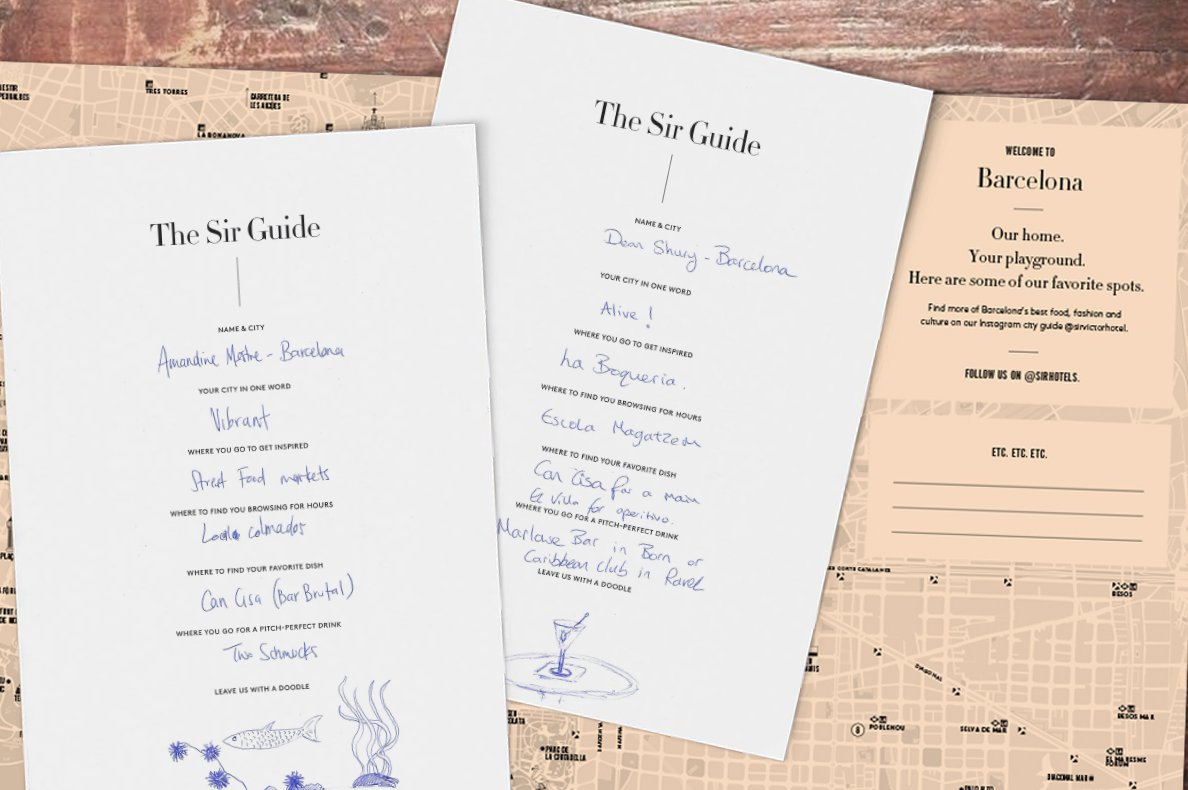 The Sir Guide
NAME & CITY
Amandine Mestre - Barcelona
YOUR CITY IN ONE WORD
Vibrant
WHERE YOU GO TO GET INSPIRED
Street Food markets
WHERE TO FIND YOU BROWSING FOR HOURS
colmados
WHERE TO FIND YOUR FAVORITE DISH
Can Cisa (Bar Brutal)
WHERE YOU GO FOR A PITCH-PERFECT DRINK
Two Schmucks
LEAVE US WITH A DOODLE
The Sir Guide
NAME & CITY
Dean Shury - Barcelona
YOUR CITY IN ONE WORD
Alive !
WHERE YOU GO TO GET INSPIRED
La Boqueria.
WHERE TO FIND YOU BROWSING FOR HOURS
Escola Magatzem
WHERE TO FIND YOUR FAVORITE DISH
Can Cisa for a main
El Villa for aperitivo.
WHERE YOU GO FOR A PITCH-PERFECT DRINK
Marlowe Bar in Born or
Caribbean Club in Raval
LEAVE US WITH A DOODLE
WELCOME TO
Barcelona
Our home.
Your playground.
Here are some of our favorite spots.
Find more of Barcelona's best food, fashion and
culture on our Instagram city guide @sirvictorhotel.
FOLLOW US ON @SIRHOTELS.
ETC. ETC. ETC.
TRES TORRES
CARRETERA DE
LES AIGÜES
LA BONANOVA
BESOS
DIAGONAL
BESOS MAR
POBLENOU
SELVA DE MAR
EL MARESME
FORUM
PARC DE
LA CIUTADELLA
DIAGONAL MAR